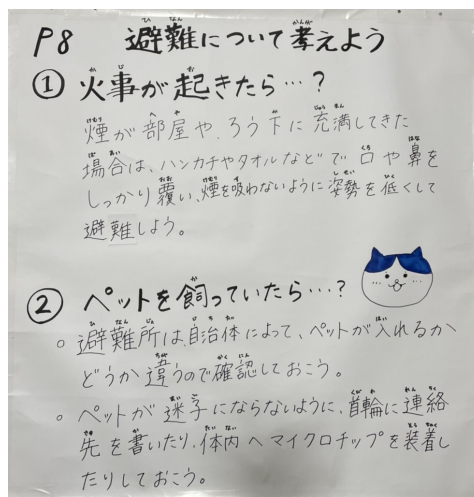 P8 避難について考えよう
① 火事が起きたら…?
煙が部屋や、ろう下に充満してきた
場合は、ハンカチやタオルなどで口や鼻を
しっかり覆い、煙を吸わないように姿勢を低くして
避難しよう。
② ペットを飼っていたら…?
。避難所は、自治体によって、ペットが入れるか
どうか違うので確認しておこう。
。ペットが迷子にならないように、首輪に連絡
先を書いたり、体内へマイクロチップを装着し
たりしておこう。